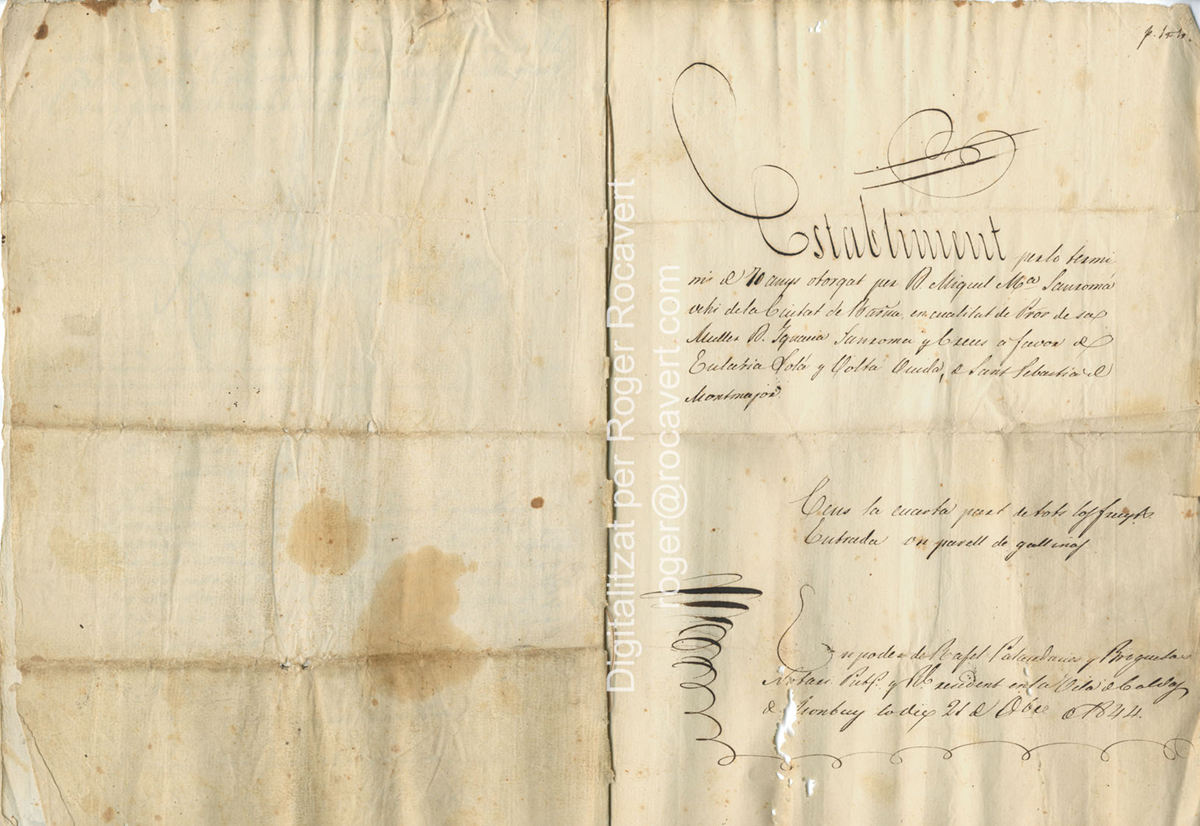 Establiment per lo termi
ni de 70 anys otorgat per D. Miquel Mª Sanromá
vehi de la Ciutat de Barña. en cualitat de Pror de sa
Muller Dª Ignacia Sanroma y Creus a favor de
Eulalia Solá y Voltá Viuda, de Sant Sebastia de
Montmajor.
Cens la cuarta part de tots los fruyts
Entrada un parell de gallinas
En poder de Rafel y
Notari Pubº. y Rl. resident en la Vila de Caldas
de Monbuy lo dia 21 de Obre de 1844.
Digitalitzat per Roger Rocavert
roger@rocavert.com